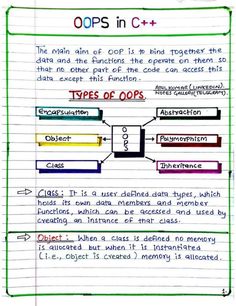 OOPS in C++
The main aim of OOP is to bind together the
data and the functions the operate on them so
that no other part of the code can access this
data except this function.
TYPES OF OOPS.
Encapsulation
Abstraction
Object
OOPS
Polymorphism
Class
Inheritance
→ Class : It is a user defined data types, which
holds its own data members and member
functions, which can be accessed and used by
creating an instance of that class.
→ Object : When a class is defined no memory
is allocated but when it is instantiated
(i.e., object is created) memory is allocated.
1